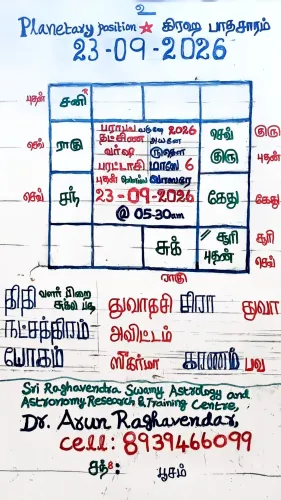 உ
Planetary position ☆ கிரஹ பாதசாரம்
23-09-2026
புதன் சனி
பராபவ வருஷ 2026
தட்சிண அயனம் செவ் குரு
செவ் ராகு வர்ஷ ருதௌ குரு புதன்
புரட்டாசி மாஸே 6
புதன்
செவ் சந் 23-09-2026 கேது கேது
@ 05-30am
சுக் // சூரி சூரி
புதன் செவ்
ராகு
திதி வளர் பிறை துவாதசி சிரா துவா
சுக்ல பக்
நட்சத்திரம் அவிட்டம்
யோகம் ஸீகர்மா காணம் பவ
Sri Raghavendra Swamy Astrology and
Astronomy Research & Training Centre,
Dr. Arun Raghavendar,
cell: 8939466099
சுத்: பூசம்